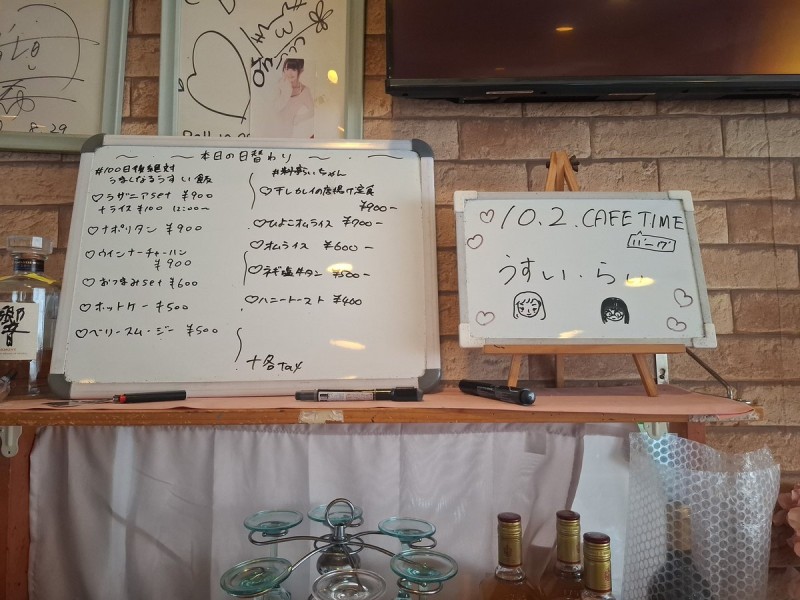 8.29
本日の日替わり
#100日後絶対
うまくなるうすい飯
♡ラザニアset ¥900
+ライス¥100 12:00〜
♡ナポリタン ¥900
♡ウインナーチャーハン
¥900
♡おつまみset ¥600
♡ホットケーキ ¥500
♡ベリースムージー ¥500
#料理らいちゃん
♡干しカレイの唐揚げ定食
¥900-
♡ひよこオムライス ¥700-
♡オムライス ¥600-
♡ネギ塩牛タン ¥500-
♡ハニートースト ¥400
+各tax
10.2.CAFE TIME
うすい・らい
響